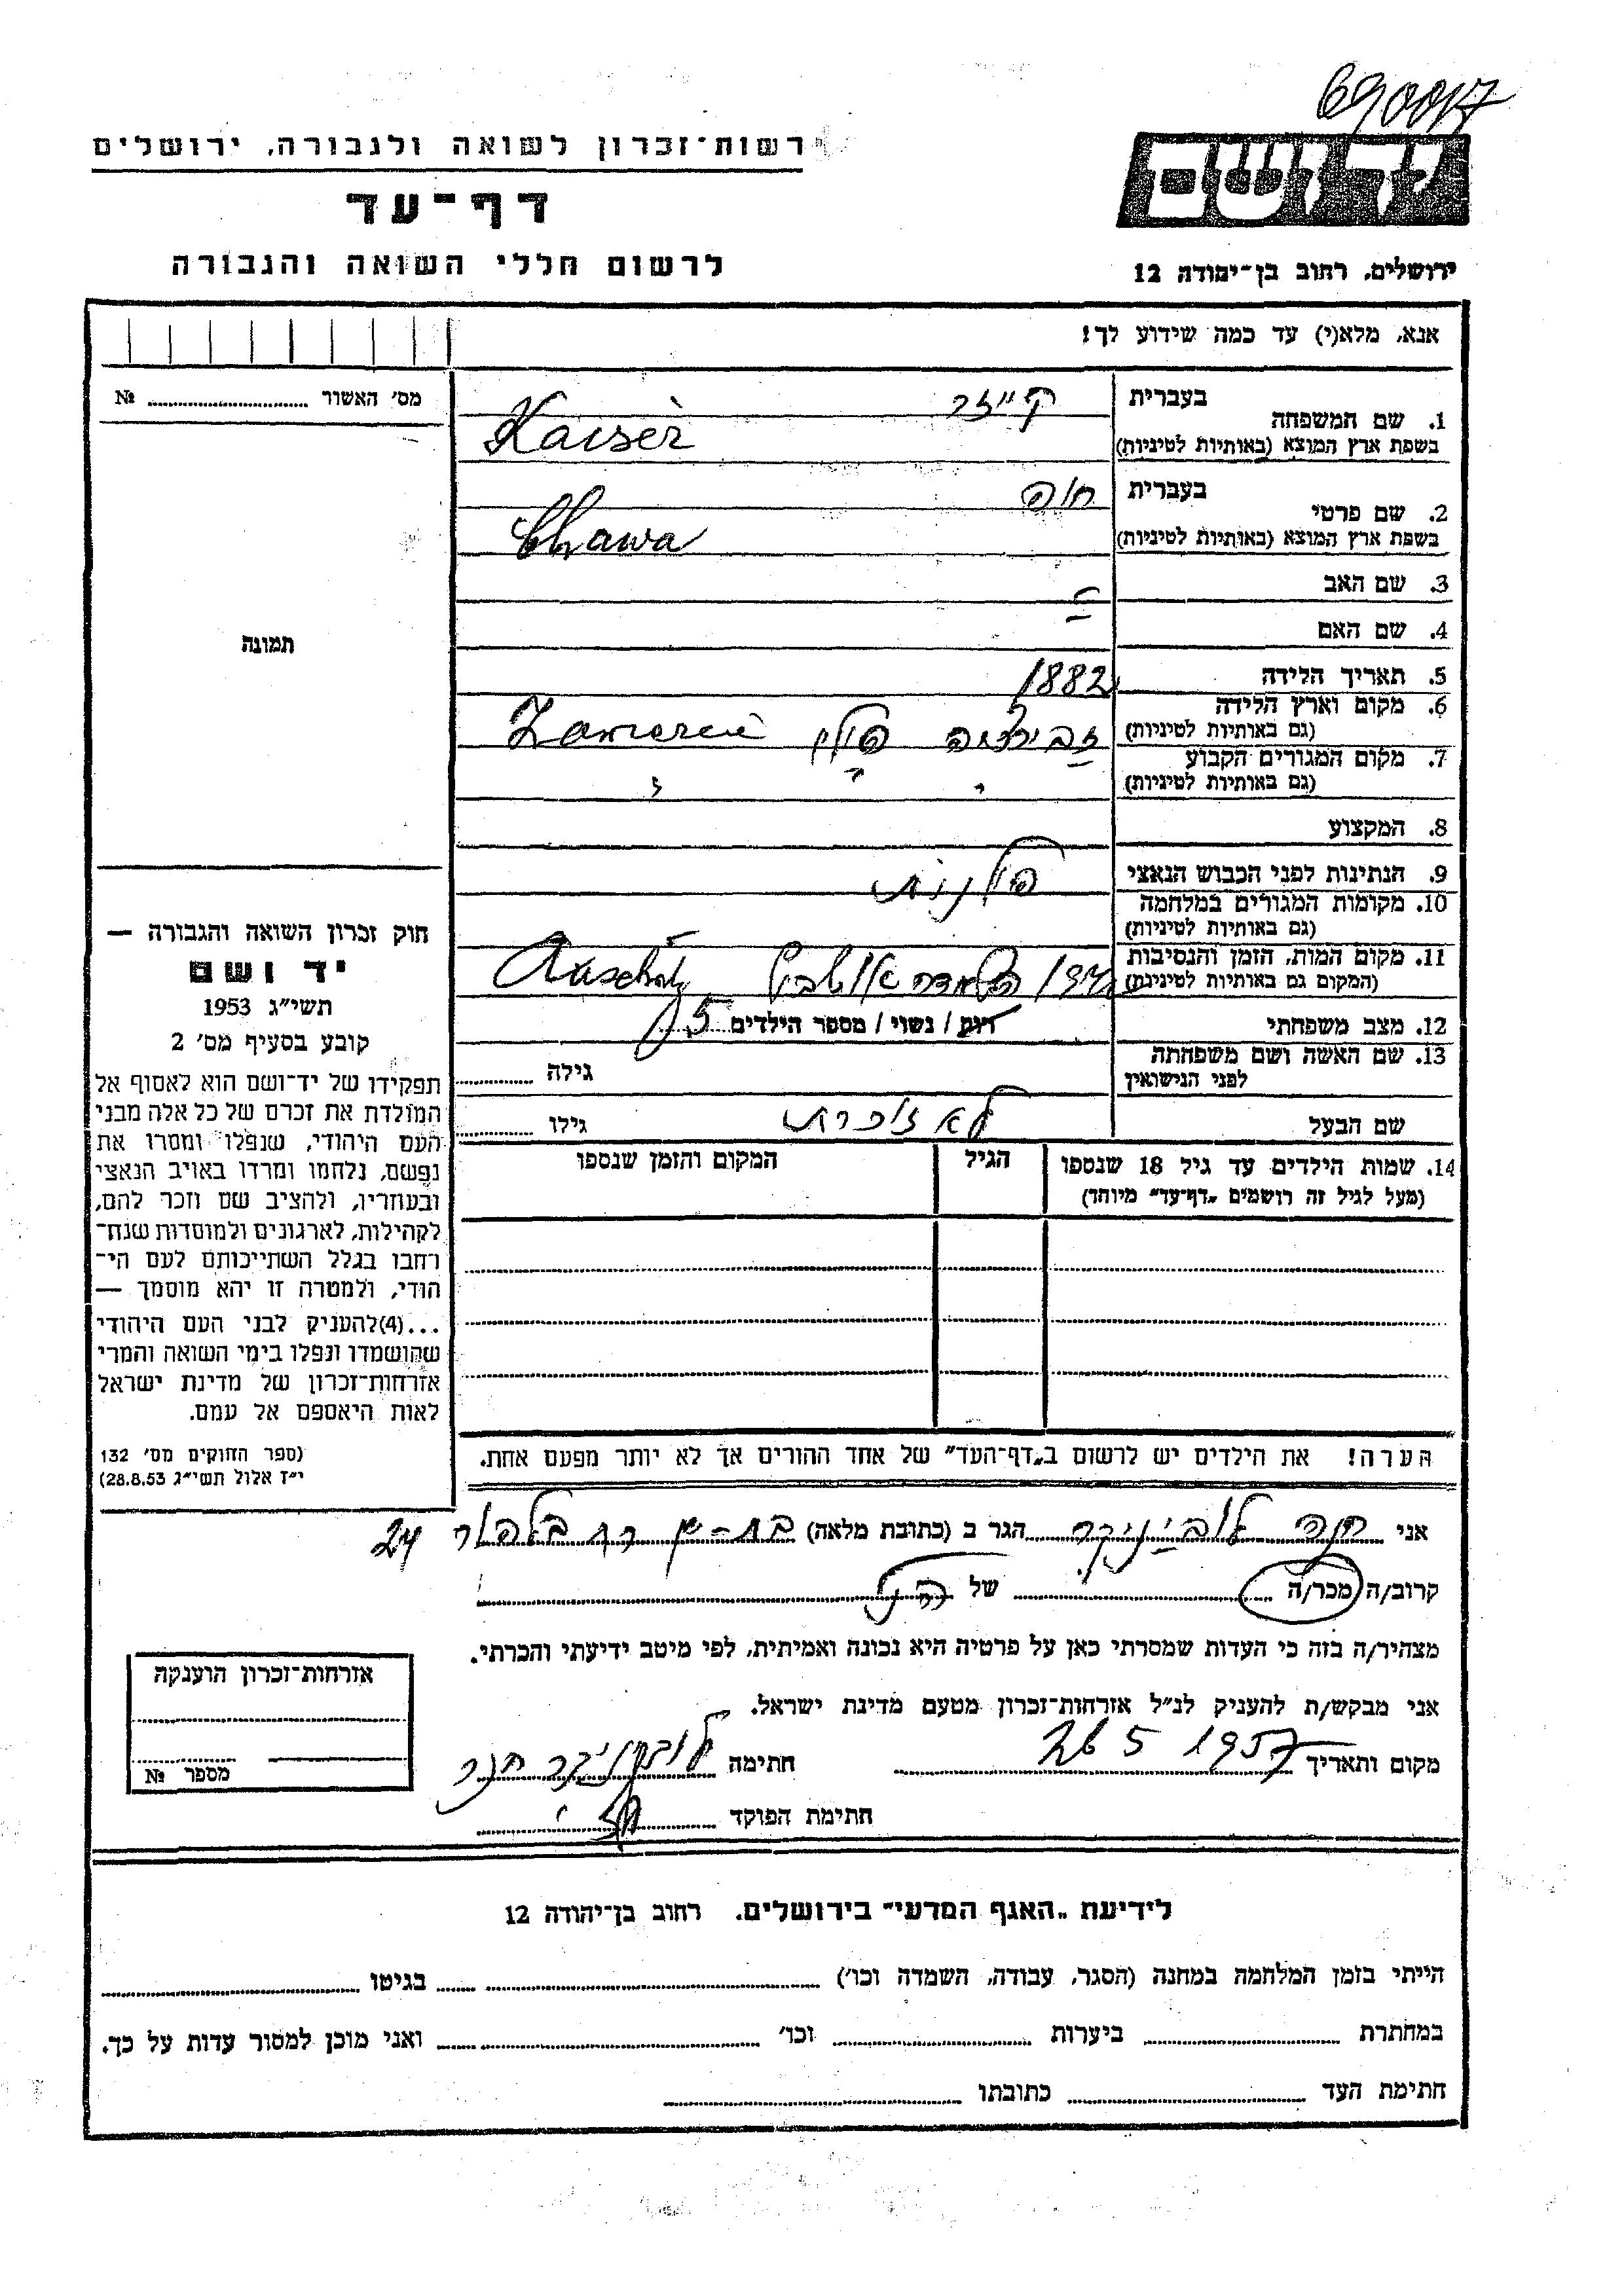 690017
רשות־זכרון לשואה ולגבורה, ירושלים
יד ושם
דף־עד
לרשום חללי השואה והגבורה
ירושלים, רחוב בן־יהודה 12
אנא, מלא(י) עד כמה שידוע לך!
מס׳ האשור № 
תמונה
1. שם המשפחה
בעברית קייזר
בשפת ארץ המוצא (באותיות לטיניות) Kaiser
2. שם פרטי
בעברית חוה
בשפת ארץ המוצא (באותיות לטיניות) Chawa
3. שם האב
4. שם האם
5. תאריך הלידה 1882
6. מקום וארץ הלידה פולין
(גם באותיות לטיניות)
7. מקום המגורים הקבוע
(גם באותיות לטיניות)
8. המקצוע
9. הנתינות לפני הכבוש הנאצי פולנית
10. מקומות המגורים במלחמה
(גם באותיות לטיניות)
11. מקום המות, הזמן והנסיבות
(המקום גם באותיות לטיניות)
12. מצב משפחתי רוק / נשוי / מספר הילדים 5
13. שם האשה ושם משפחתה
לפני הנישואין גילה
שם הבעל לא זוכרת גילו
14. שמות הילדים עד גיל 18 שנספו הגיל המקום והזמן שנספו
(מעל לגיל זה רושמים „דף־עד״ מיוחד)
הערה! את הילדים יש לרשום ב„דף־העד״ של אחד ההורים אך לא יותר מפעם אחת.
חוק זכרון השואה והגבורה —
יד ושם
תשי״ג 1953
קובע בסעיף מס׳ 2
תפקידו של יד־ושם הוא לאסוף אל
המולדת את זכרם של כל אלה מבני
העם היהודי, שנפלו ומסרו את
נפשם, נלחמו ומרדו באויב הנאצי
ובעוזריו, ולהציב שם וזכר להם,
לקהילות, לארגונים ולמוסדות שנח־
רחבו בגלל השתייכותם לעם הי־
הודי, ולמטרה זו יהא מוסמך —
...(4)להעניק לבני העם היהודי
שהושמדו ונפלו בימי השואה והמרי
אזרחות־זכרון של מדינת ישראל
לאות היאספם אל עמם.
(ספר החוקים מס׳ 132
י״ז אלול תשי״ג 28.8.53)
אני חנה הגר ב (כתובת מלאה) בת־ים רח 24
קרוב/ה מכר/ה של הנ״ל
מצהיר/ה בזה כי העדות שמסרתי כאן על פרטיה היא נכונה ואמיתית, לפי מיטב ידיעתי והכרתי.
אני מבקש/ת להעניק לנ״ל אזרחות־זכרון מטעם מדינת ישראל.
מקום ותאריך 26 5 1957 חתימה חנה
חתימת הפוקד
אזרחות־זכרון הוענקה
מספר №
לידיעת „האגף המדעי״ בירושלים, רחוב בן־יהודה 12
הייתי בזמן המלחמה במחנה (הסגר, עבודה, השמדה וכו׳) בגיטו
במחתרת ביערות וכו׳ ואני מוכן למסור עדות על כך.
חתימת העד כתובתו